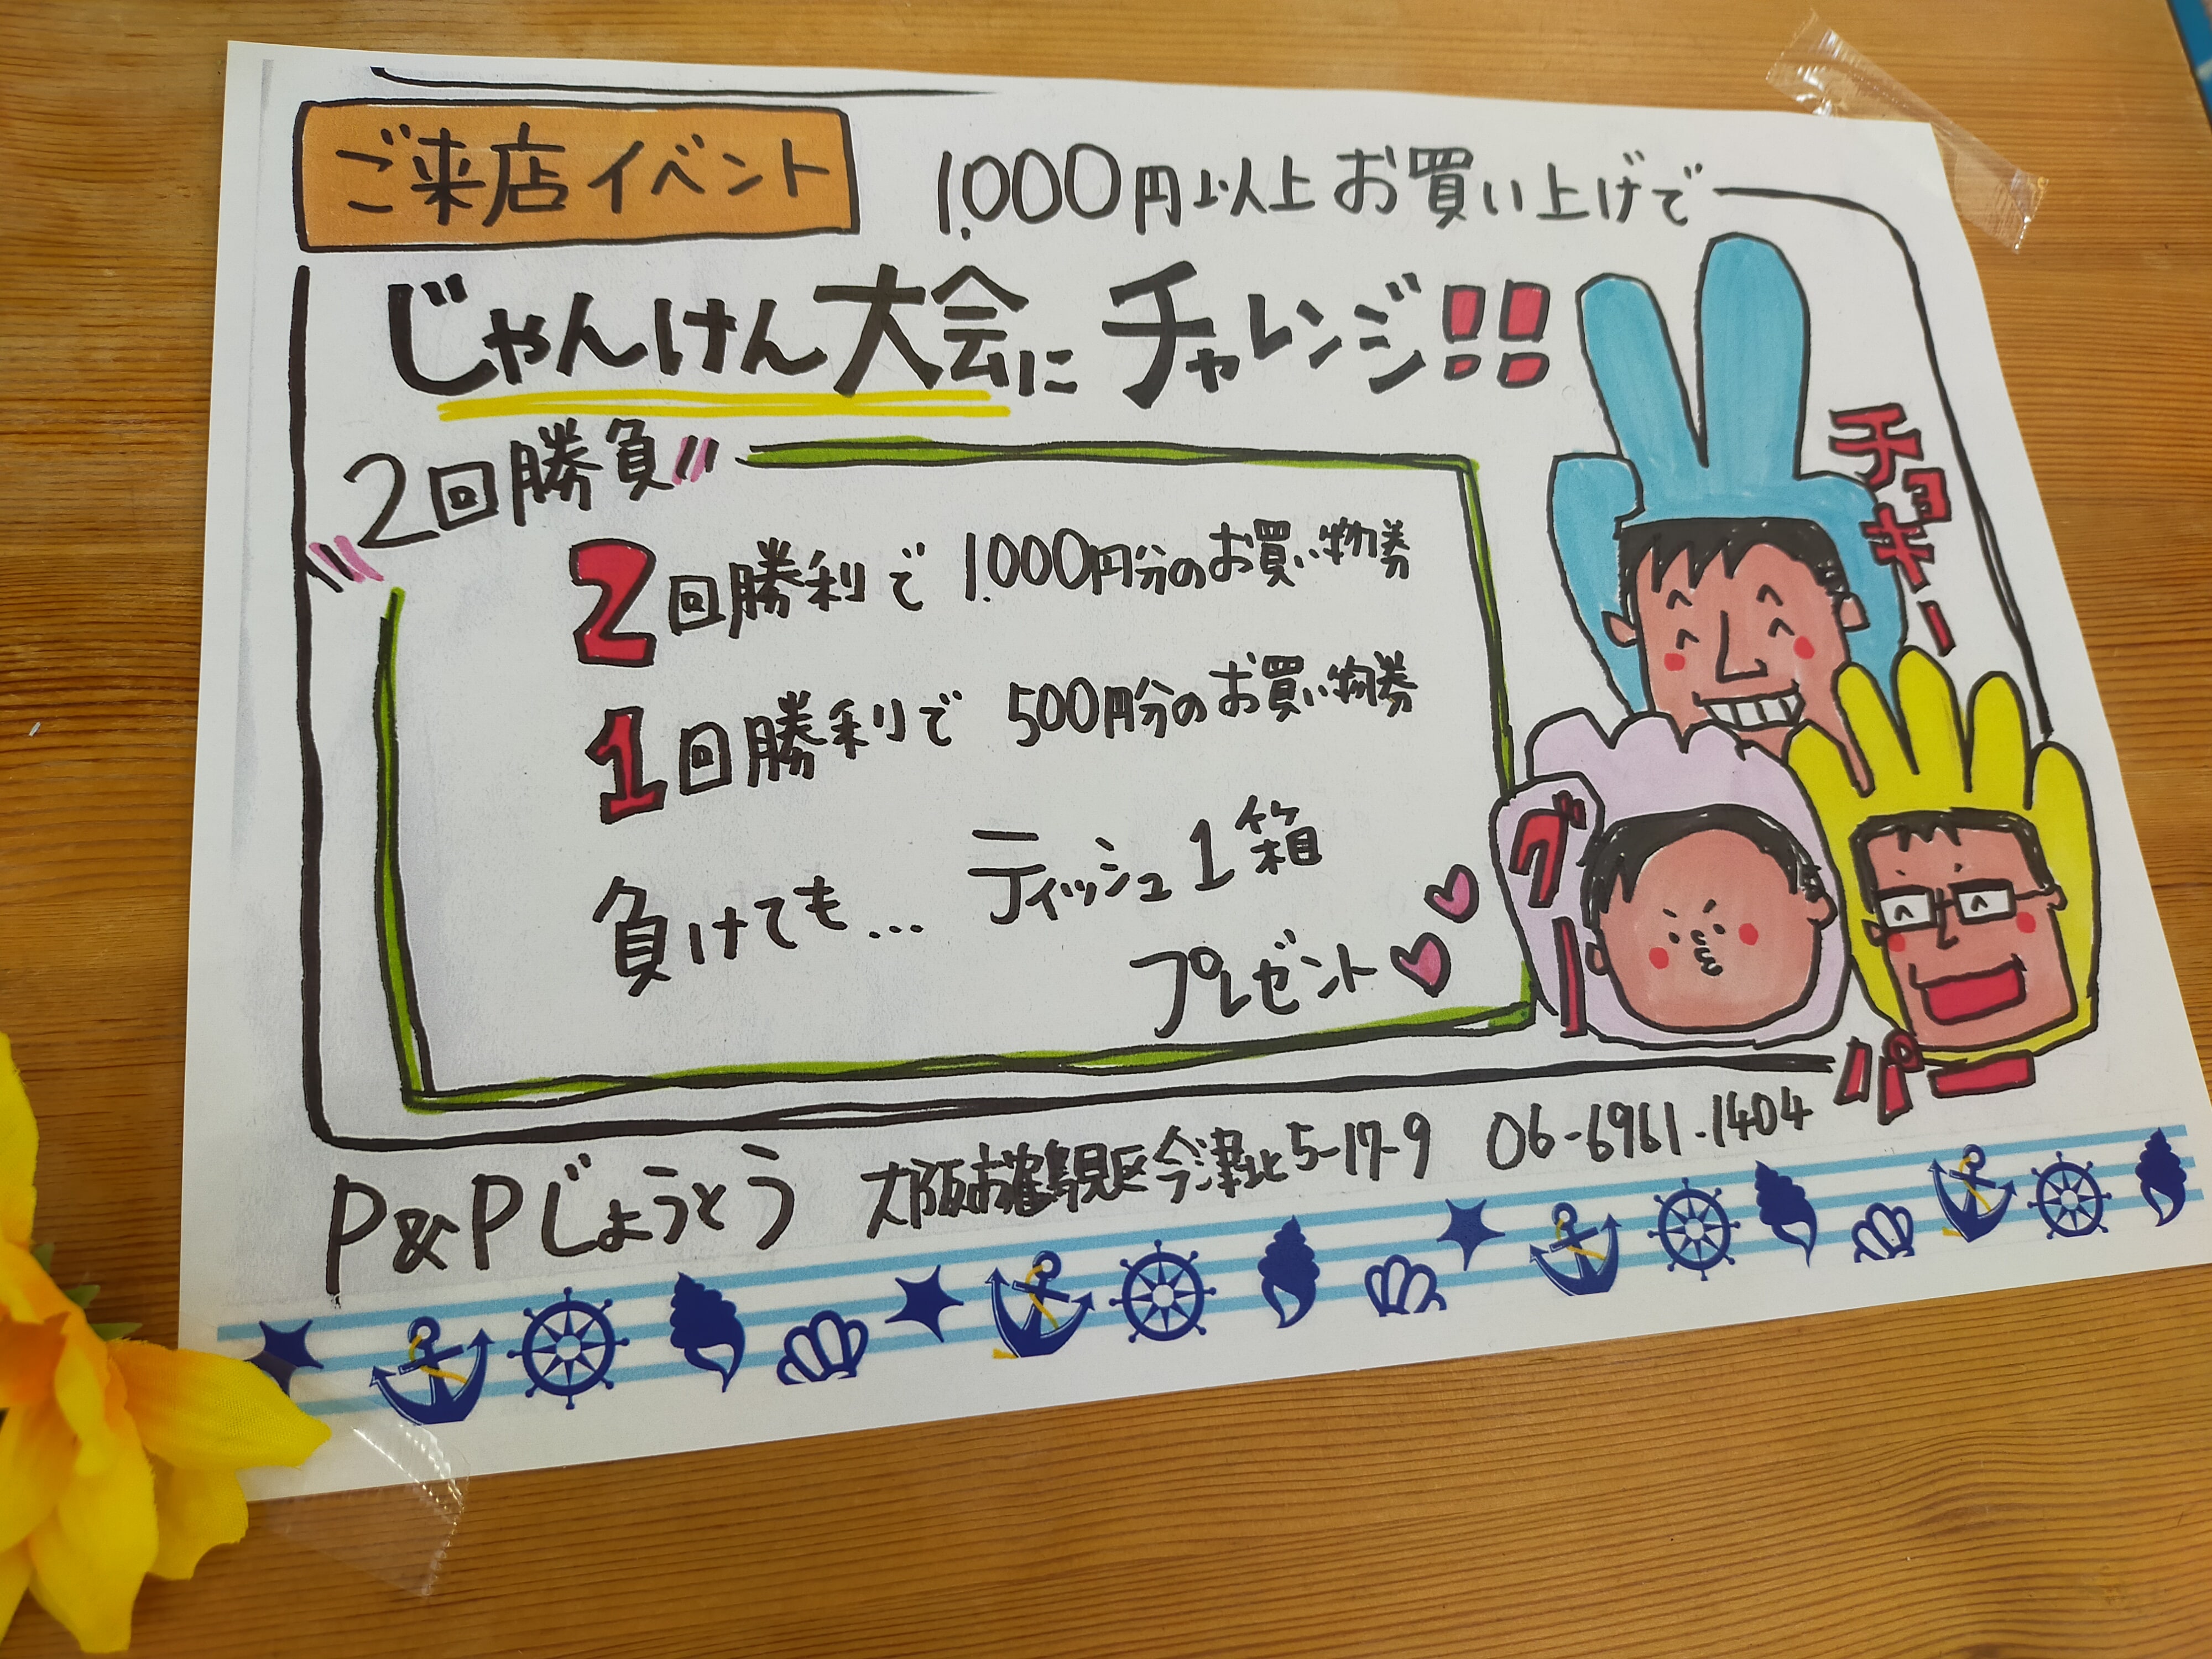 ご来店イベント
1.000円以上お買い上げで
じゃんけん大会にチャレンジ!!
2回勝負
2回勝利で 1.000円分のお買い物券
1回勝利で 500円分のお買い物券
負けても… ティッシュ1箱
プレゼント
チョキー
グー
パー
P&Pじょうとう 大阪市鶴見区今津北5-17-9 06-6961-1404